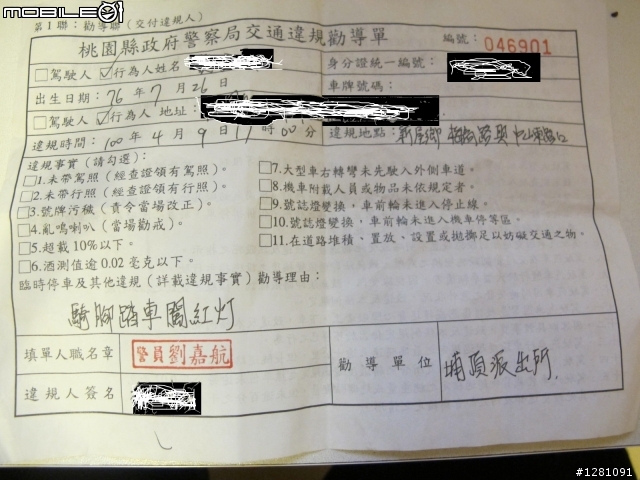 MOBILE01
第1聯：勸導聯（交付違規人）
桃園縣政府警察局交通違規勸導單
編號：046901
□駕駛人 ☑行為人姓名
身分證統一編號：
出生日期：76年7月26日
車牌號碼：
□駕駛人 ☑行為人 地址：
違規時間：100年4月9日17時00分
違規地點：新屋鄉
違規事實（請勾選）：
□1.未帶駕照（經查證領有駕照）。
□2.未帶行照（經查證領有行照）。
□3.號牌污穢（責令當場改正）。
□4.亂鳴喇叭（當場勸戒）。
□5.超載10%以下。
□6.酒測值逾0.02毫克以下。
□7.大型車右轉彎未先駛入外側車道。
□8.機車附載人員或物品未依規定者。
□9.號誌燈變換，車前輪未進入停止線。
□10.號誌燈變換，車前輪未進入機車停等區。
□11.在道路堆積、置放、設置或拋擲足以妨礙交通之物。
臨時停車及其他違規（詳載違規事實）勸導理由：
騎腳踏車闖紅灯
填單人職名章
警員劉嘉航
勸導單位
埔頂派出所
違規人簽名
#1281091